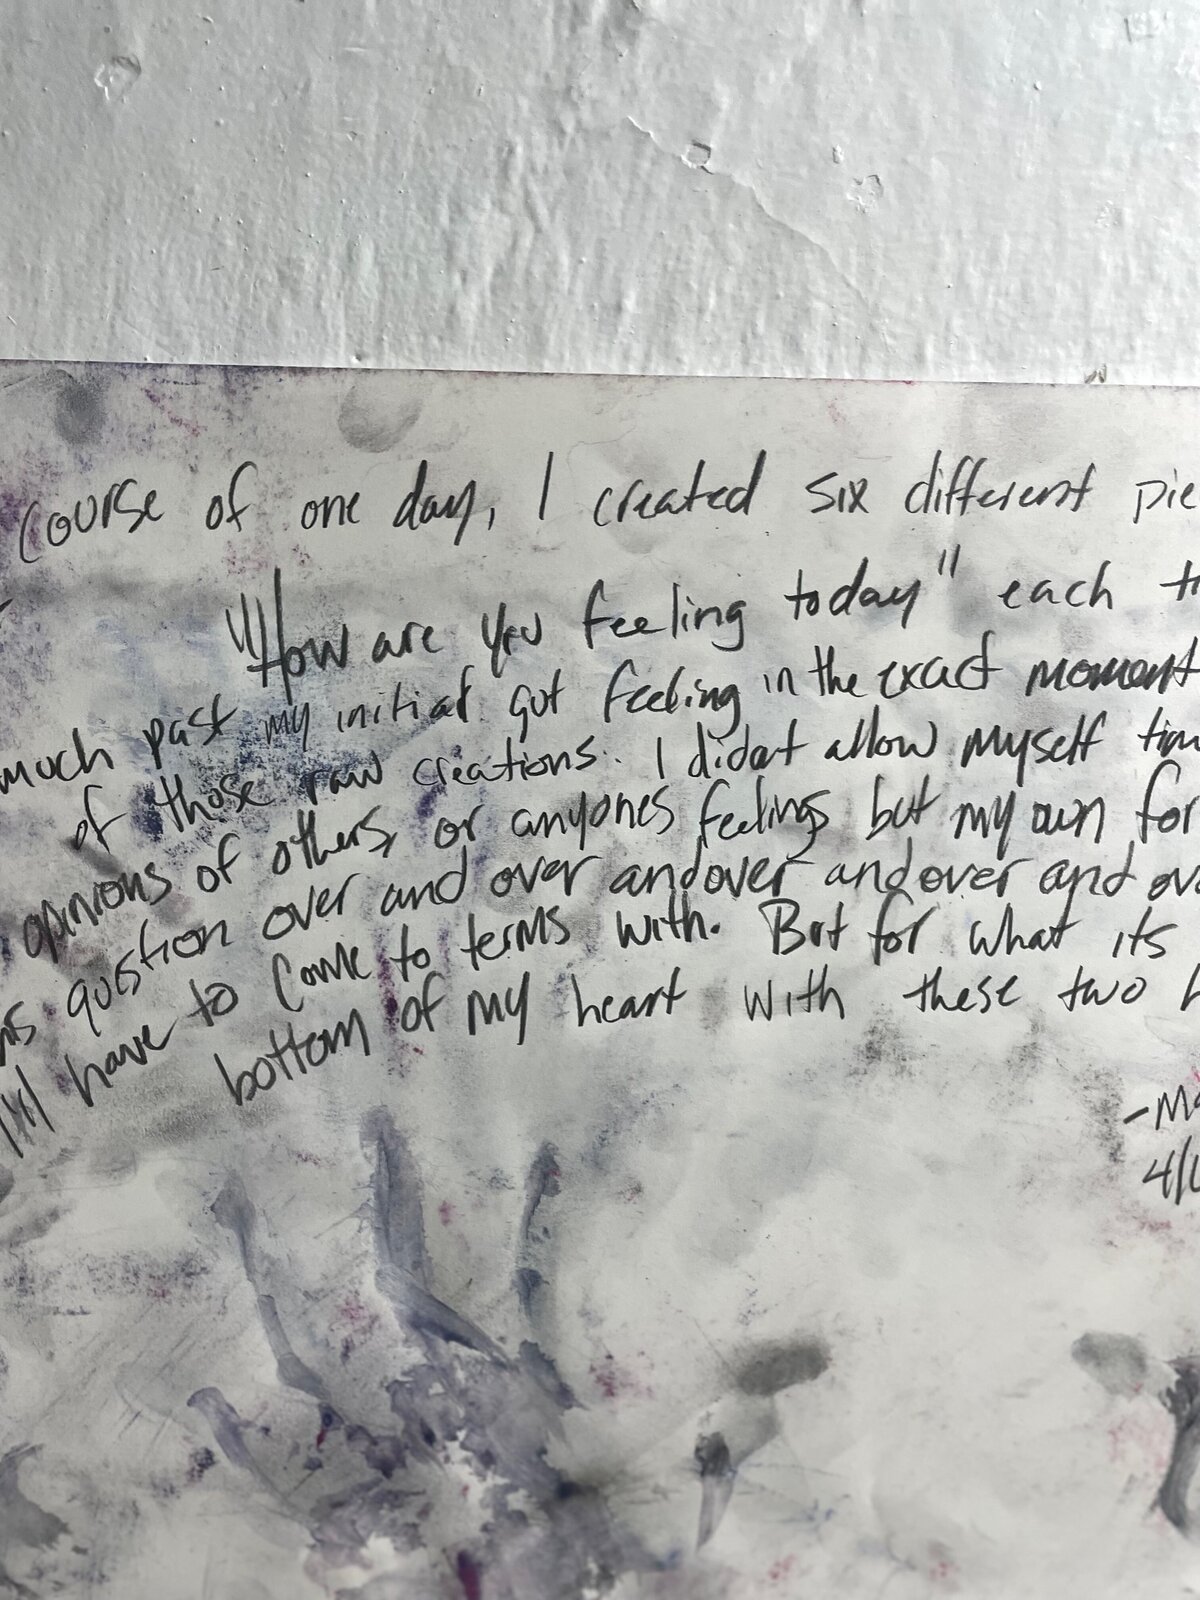 course of one day, I created six different pie
"How are you feeling today" each ti
much past my initial gut feeling in the exact moment
of those raw creations. I didnt allow myself tim
opinions of others, or anyones feelings but my own for
question over and over andover andover and ove
have to come to terms with. But for what its
bottom of my heart with these two h
-Ma
4/